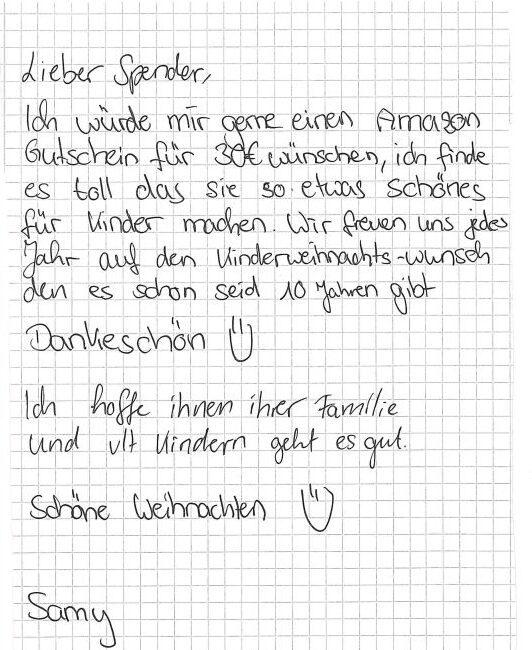 Lieber Spender,
Ich würde mir gerne einen Amazon
Gutschein für 30€ wünschen, ich finde
es toll das sie so etwas schönes
für Kinder machen. Wir freuen uns jedes
Jahr auf den Kinderweihnachts-wunsch
den es schon seid 10 Jahren gibt
Dankeschön
Ich hoffe ihnen ihrer Familie
und vlt Kindern geht es gut.
Schöne Weihnachten
Samy